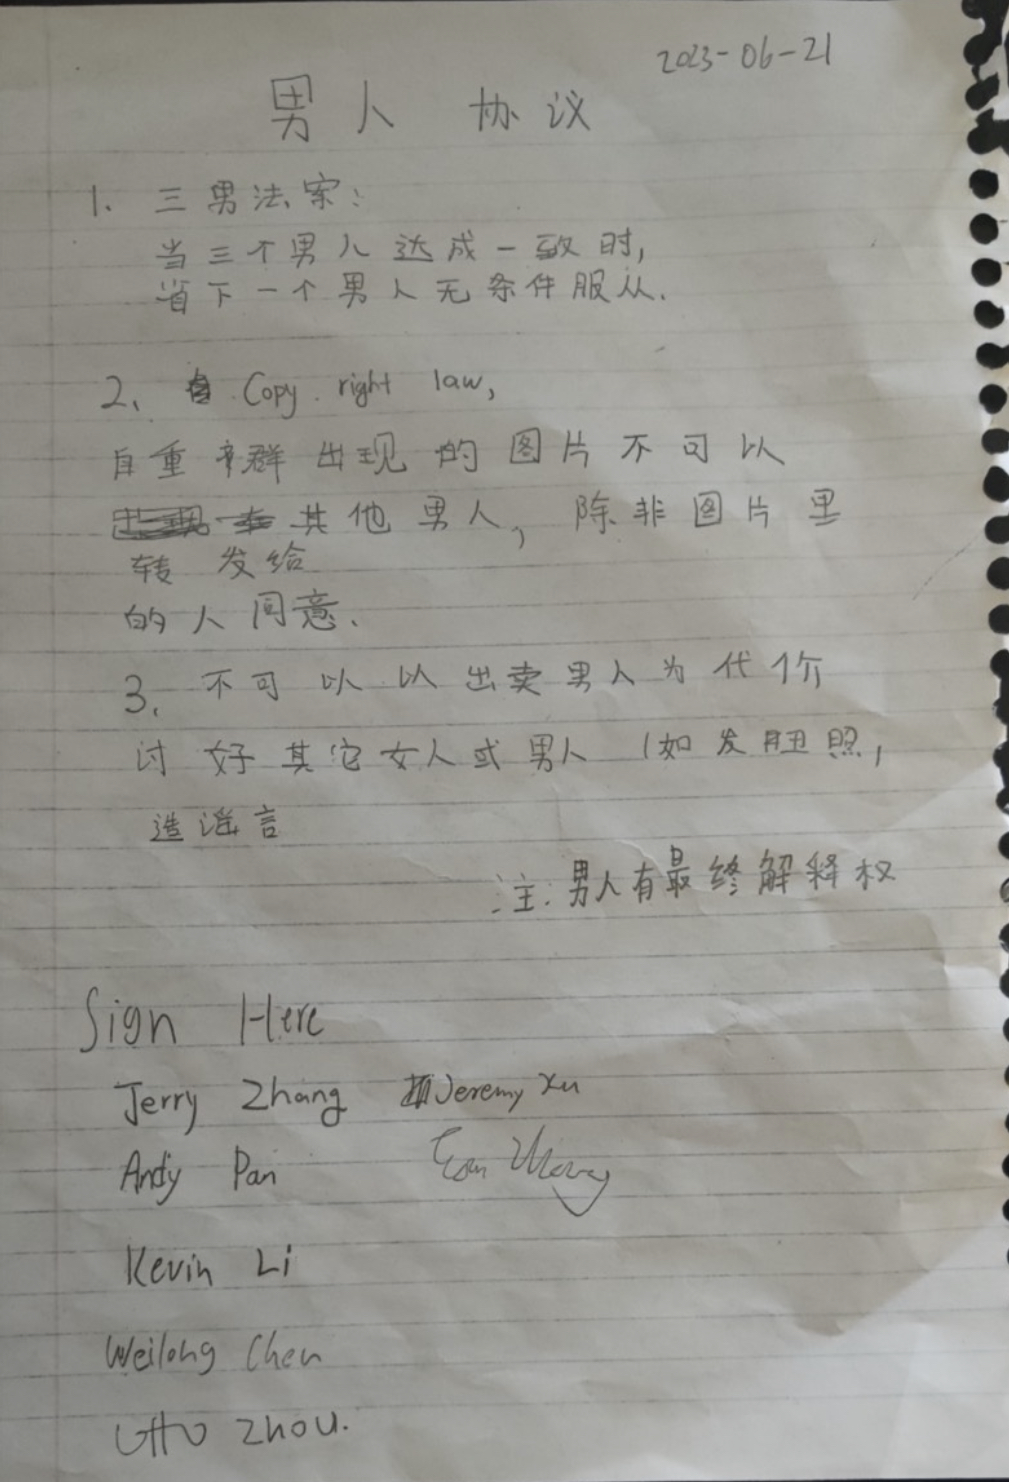 2023-06-21
男人 协议
1. 三男法案:
当三个男人达成一致时,
省下一个男人无条件服从.
2、 Copy right law,
自重 群出现的图片不可以
其他男人, 除非图片里
转发给
的人同意.
3. 不可以以出卖男人为代价
讨好其它女人或男人 (如发丑照,
造谣言
注: 男人有最终解释权
Sign Here
Jerry Zhang Jeremy Xu
Andy Pan
Kevin Li
Weilong Chen
Otto Zhou.